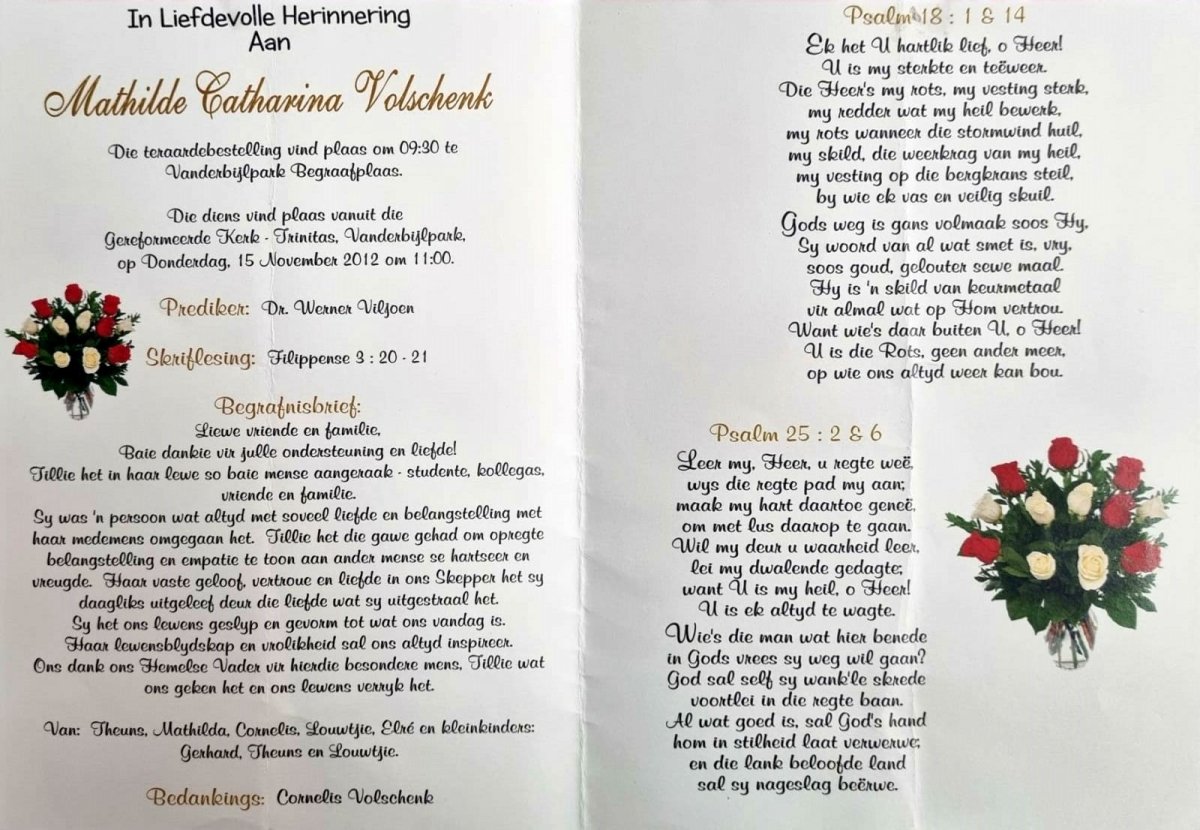 In Liefdevolle Herinnering
Aan
Mathilde Catharina Volschenk
Die teraardebestelling vind plaas om 09:30 te
Vanderbijlpark Begraafplaas.
Die diens vind plaas vanuit die
Gereformeerde Kerk - Trinitas, Vanderbijlpark,
op Donderdag, 15 November 2012 om 11:00.
Prediker: Dr. Werner Viljoen
Skriflesing: Filippense 3 : 20 - 21
Begrafnisbrief:
Liewe vriende en familie,
Baie dankie vir julle ondersteuning en liefde!
Tillie het in haar lewe so baie mense aangeraak - studente, kollegas,
vriende en familie.
Sy was 'n persoon wat altyd met soveel liefde en belangstelling met
haar medemens omgegaan het. Tillie het die gawe gehad om opregte
belangstelling en empatie te toon aan ander mense se hartseer en
vreugde. Haar vaste geloof, vertroue en liefde in ons Skepper het sy
daagliks uitgeleef deur die liefde wat sy uitgestraal het.
Sy het ons lewens geslyp en gevorm tot wat ons vandag is.
Haar lewensblydskap en vrolikheid sal ons altyd inspireer.
Ons dank ons Hemelse Vader vir hierdie besondere mens, Tillie wat
ons geken het en ons lewens verryk het.
Van: Theuns, Mathilda, Cornelis, Louwtjie, Elré en kleinkinders:
Gerhard, Theuns en Louwtjie.
Bedankings: Cornelis Volschenk
Psalm 18 : 1 & 14
Ek het U hartlik lief, o Heer!
U is my sterkte en teëweer.
Die Heer's my rots, my vesting sterk,
my redder wat my heil bewerk,
my rots wanneer die stormwind huil,
my skild, die weerkrag van my heil,
my vesting op die bergkrans steil,
by wie ek vas en veilig skuil.
Gods weg is gans volmaak soos Hy,
Sy woord van al wat smet is, vry,
soos goud, gelouter sewe maal.
Hy is 'n skild van keurmetaal
vir almal wat op Hom vertrou.
Want wie's daar buiten U, o Heer!
U is die Rots, geen ander meer,
op wie ons altyd weer kan bou.
Psalm 25 : 2 & 6
Leer my, Heer, u regte weë,
wys die regte pad my aan;
maak my hart daartoe geneë,
om met lus daarop te gaan.
Wil my deur u waarheid leer,
lei my dwalende gedagte;
want U is my heil, o Heer!
U is ek altyd te wagte.
Wie's die man wat hier benede
in Gods vrees sy weg wil gaan?
God sal self sy wank'le skrede
voortlei in die regte baan.
Al wat goed is, sal God's hand
hom in stilheid laat verwerwe;
en die lank beloofde land
sal sy nageslag beërwe.